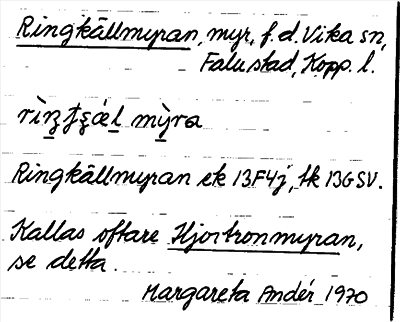 Ringkällmyran, myr, f.d. Vika sn,
Falu stad, Kopp. l.
Ringkällmyran ek 13F4j, tk 13G SV.
Kallas oftare Hjortronmyran,
se detta.
Margareta Andér 1970